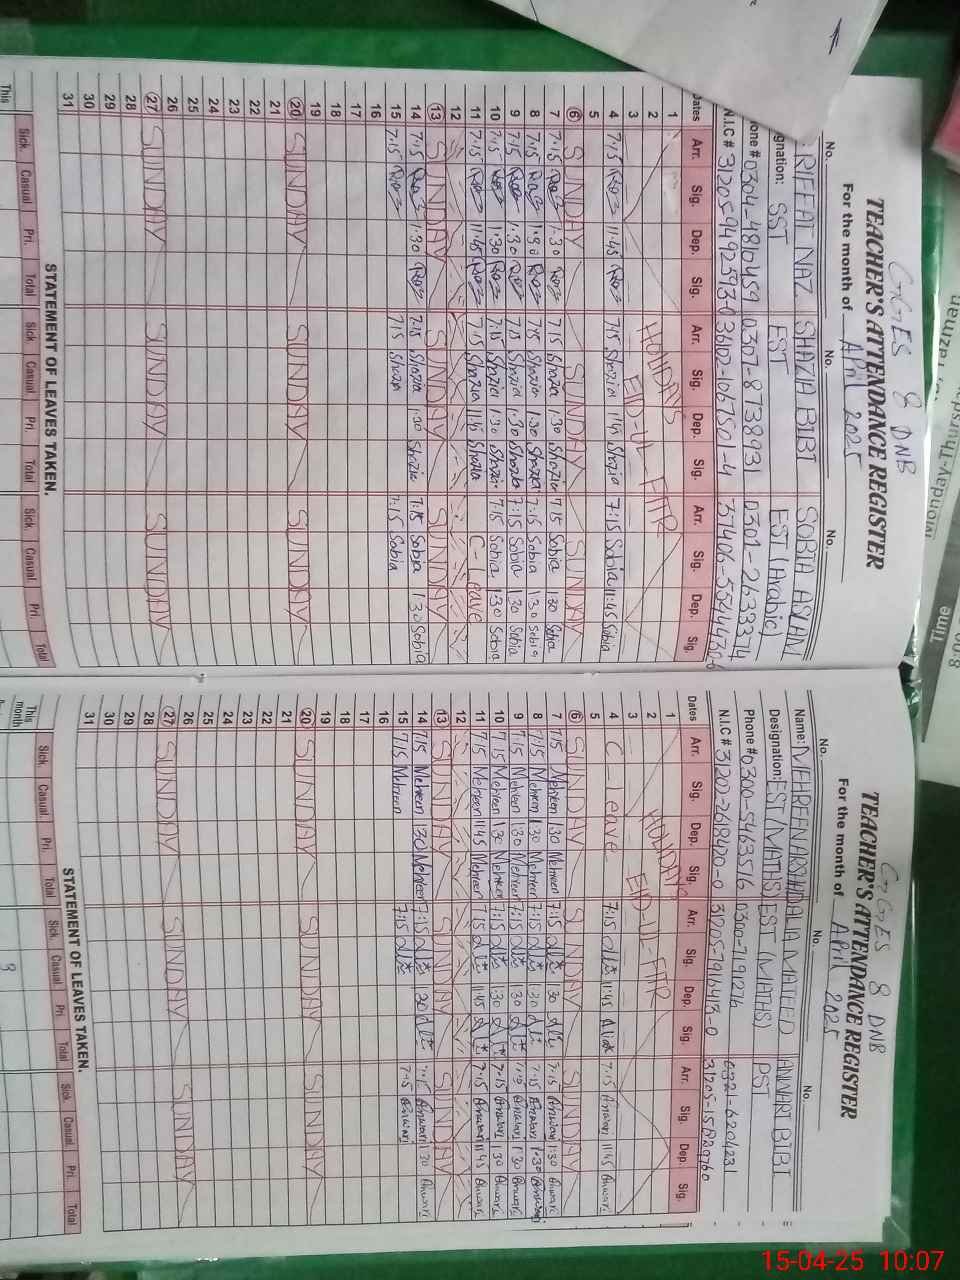 GGES 8 DNB
TEACHER'S ATTENDANCE REGISTER
For the month of April 2025
No. No. No.
RIFFAT NAZ SHAZIA BIBI SOBIA ASLAM
Designation: SST EST EST (Arabic)
Phone # 0304-4810459 0307-8738931 0301-2633374
N.I.C #
Dates Arr. Sig. Dep. Sig. Arr. Sig. Dep. Sig. Arr. Sig. Dep. Sig.
1
2 HOLIDAYS
3 EID-UL-FITR
4 7:15 11:45 7:15 Shazia 11:45 Shazia 7:15 Sobia 11:45 Sobia
5
6 SUNDAY SUNDAY SUNDAY
7 7:15 1:30 7:15 Shazia 1:30 Shazia 7:15 Sobia 1:30 Sobia
8 7:15 1:30 7:15 Shazia 1:30 Shazia 7:15 Sobia 1:30 Sobia
9 7:15 1:30 7:15 Shazia 1:30 Shazia 7:15 Sobia 1:30 Sobia
10 7:15 1:30 7:15 Shazia 1:30 Shazia 7:15 Sobia 1:30 Sobia
11 7:15 11:45 7:15 Shazia 11:45 Shazia C-leave
12
13 SUNDAY SUNDAY SUNDAY
14 7:15 1:30 7:15 Shazia 1:30 Shazia 7:15 Sobia 1:30 Sobia
15 7:15 7:15 Shazia 7:15 Sobia
16
17
18
19
20 SUNDAY SUNDAY SUNDAY
21
22
23
24
25
26
27 SUNDAY SUNDAY SUNDAY
28
29
30
31
STATEMENT OF LEAVES TAKEN.
Sick. Casual Pri. Total Sick. Casual Pri. Total Sick. Casual Pri. Total
This
GGES 8 DNB
TEACHER'S ATTENDANCE REGISTER
For the month of April 2025
No. No. No
Name: MEHREEN ARSHAD ALIA MAJEED ANWARI BIBI
Designation: EST (MATHS) EST (MATHS) PST
Phone # 0300-5463516 0300-7119276 0321-6204231
N.I.C # 31202-2618420-0 31205-7916413-0
Dates Arr. Sig. Dep. Sig. Arr. Sig. Dep. Sig. Arr. Sig. Dep. Sig.
1
2 HOLIDAYS
3 EID-UL-FITR
4 C-leave 7:15 11:45 7:15 Anwari 11:45 Anwari
5
6 SUNDAY SUNDAY SUNDAY
7 7:15 Mehreen 1:30 Mehreen 7:15 1:30 7:15 Anwari 1:30 Anwari
8 7:15 Mehreen 1:30 Mehreen 7:15 1:30 7:15 Anwari 1:30 Anwari
9 7:15 Mehreen 1:30 Mehreen 7:15 1:30 7:15 Anwari 1:30 Anwari
10 7:15 Mehreen 1:30 Mehreen 7:15 1:30 7:15 Anwari 1:30 Anwari
11 7:15 Mehreen 11:45 Mehreen 7:15 11:45 7:15 Anwari 11:45 Anwari
12
13 SUNDAY SUNDAY SUNDAY
14 7:15 Mehreen 1:30 Mehreen 7:15 1:30 7:15 Anwari 1:30 Anwari
15 7:15 Mehreen 7:15 7:15 Anwari
16
17
18
19
20 SUNDAY SUNDAY SUNDAY
21
22
23
24
25
26
27 SUNDAY SUNDAY SUNDAY
28
29
30
31
STATEMENT OF LEAVES TAKEN.
Sick. Casual. Pri. Total Sick. Casual Pri. Total Sick. Casual Pri. Total
This month
Time
15-04-25 10:07